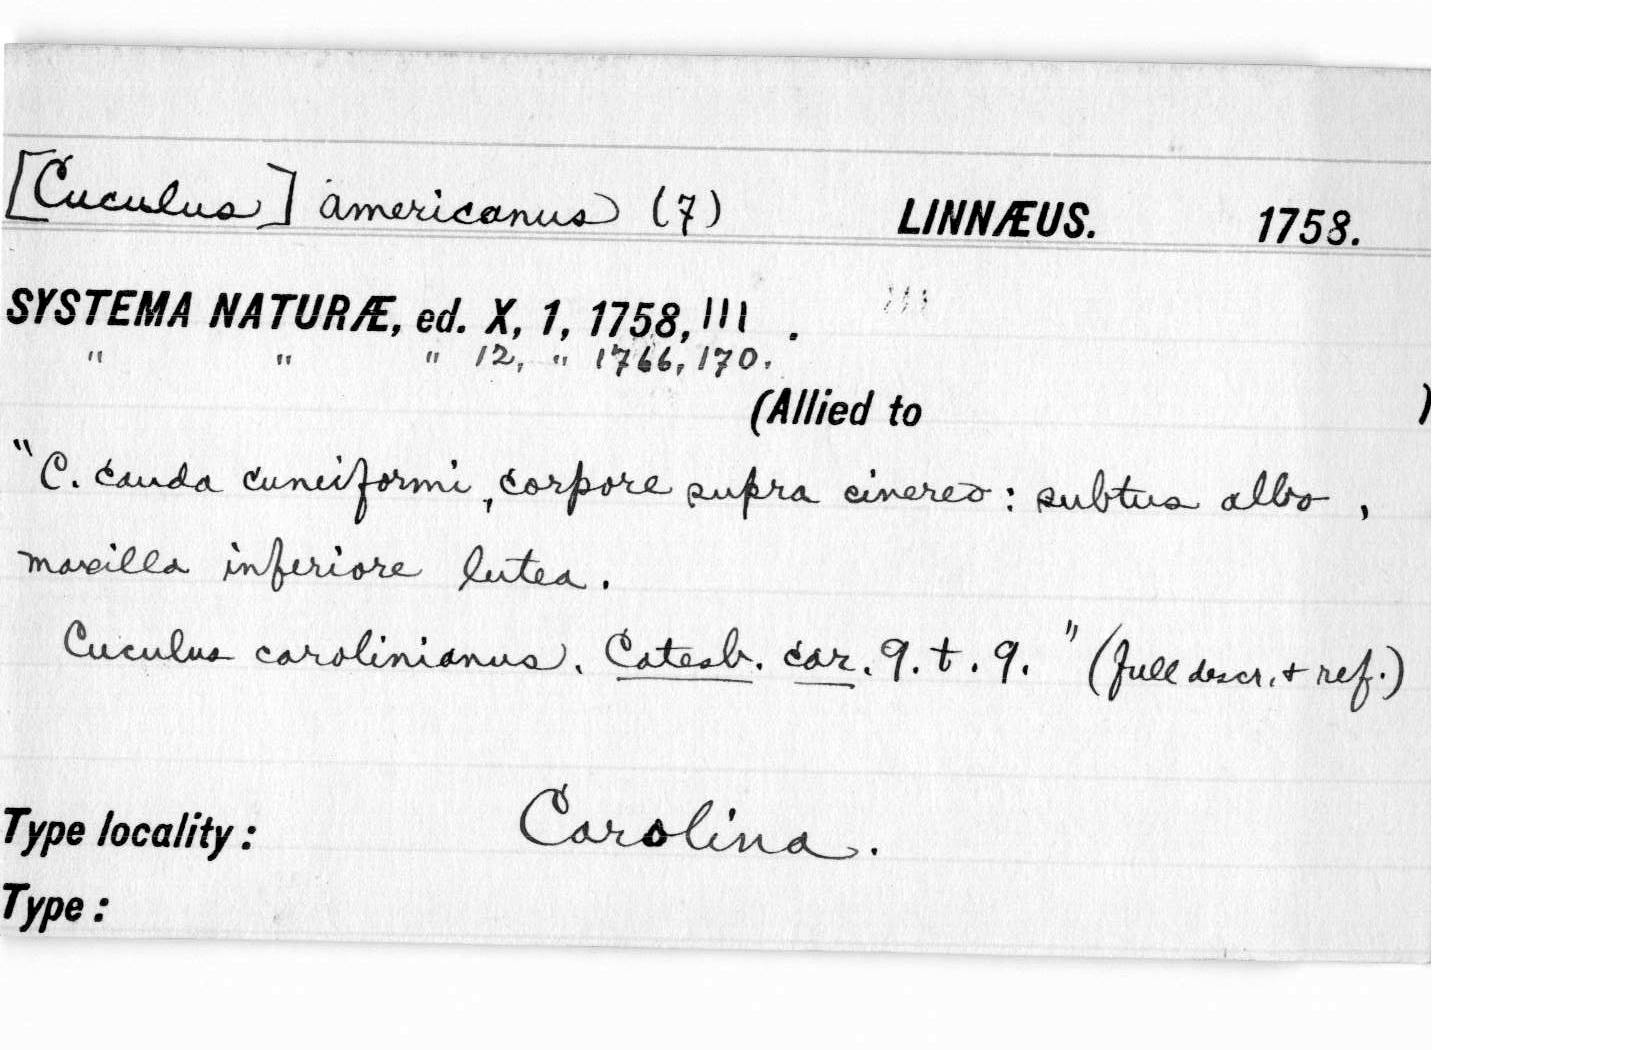 [Cuculus] americanus (7) LINNÆUS. 1758.
SYSTEMA NATURÆ, ed. X, 1, 1758, 111 .
" " " 12, " 1766, 170.
(Allied to )
"C. cauda cuneiformi, corpore supra cinereo: subtus albo,
maxilla inferiore lutea.
Cuculus carolinianus. Catesb. car. 9. t. 9." (full descr. + ref.)
Type locality: Carolina.
Type: